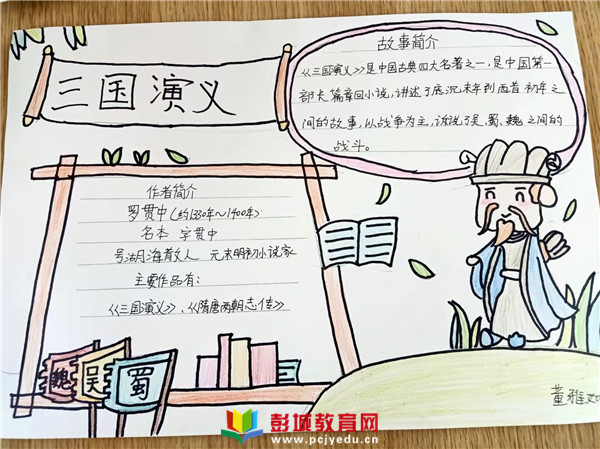 三国演义
故事简介
《三国演义》是中国古典四大名著之一,是中国第一
部长篇章回小说,讲述了东汉末年到西晋初年之
间的故事,以战争为主,诉说了吴、蜀、魏之间的
战斗。
作者简介
罗贯中(约1330年～1400年)
名本 字贯中
号湖海散人 元末明初小说家
主要作品有:
《三国演义》、《隋唐两朝志传》
魏
吴
蜀
董雅
彭城教育网
www.pcjyedu.cn